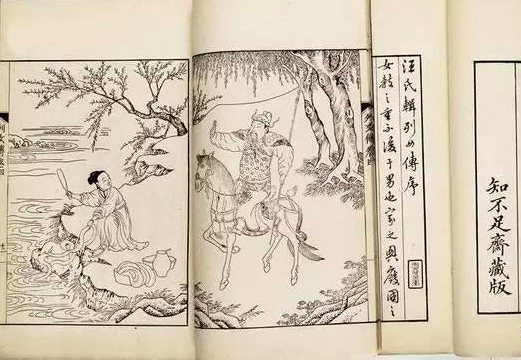 知不足齋藏版
汪氏輯列女傳序
女教之重不于男也家之興廢國之
列女傳卷四